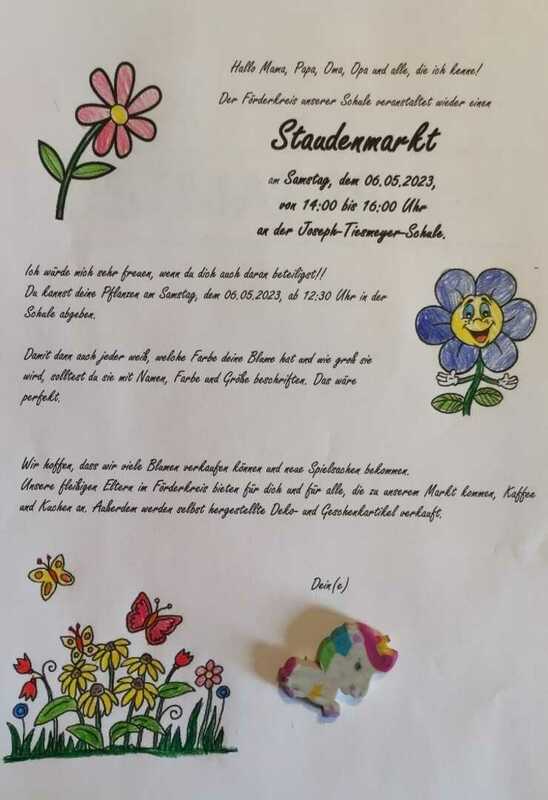 Hallo Mama, Papa, Oma, Opa und alle, die ich kenne!
Der Förderkreis unserer Schule veranstaltet wieder einen
Staudenmarkt
am Samstag, dem 06.05.2023,
von 14:00 bis 16:00 Uhr
an der Joseph-Tiesmeyer-Schule.
Ich würde mich sehr freuen, wenn du dich auch daran beteiligst!!
Du kannst deine Pflanzen am Samstag, dem 06.05.2023, ab 12:30 Uhr in der
Schule abgeben.
Damit dann auch jeder weiß, welche Farbe deine Blume hat und wie groß sie
wird, solltest du sie mit Namen, Farbe und Größe beschriften. Das wäre
perfekt.
Wir hoffen, dass wir viele Blumen verkaufen können und neue Spielsachen bekommen.
Unsere fleißigen Eltern im Förderkreis bieten für dich und für alle, die zu unserem Markt kommen, Kaffee
und Kuchen an. Außerdem werden selbst hergestellte Deko- und Geschenkartikel verkauft.
Dein(e)